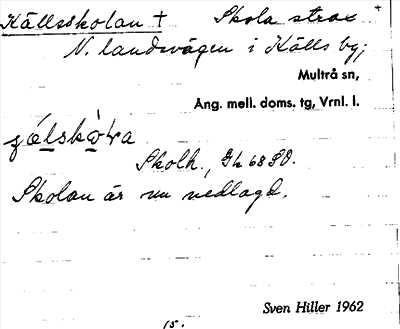 Källsskolan † Skola strax +
N. landsvägen i Källs by;
Multrå sn,
Ang. mell. doms. tg, Vrnl. l.
Skolh., Gk 68 SO.
Skolan är nu nedlagd.
Sven Hiller 1962
15.